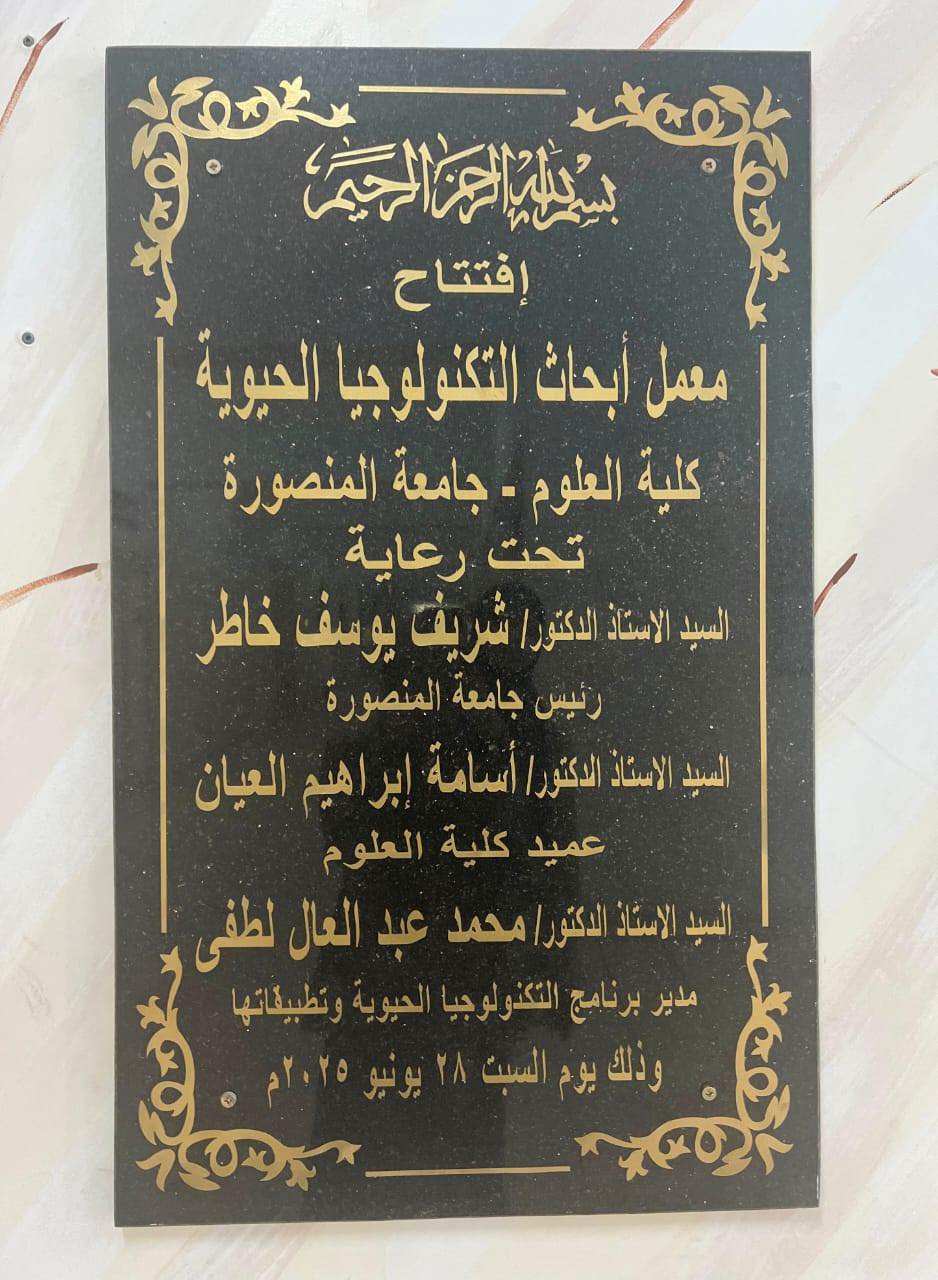 بسم الله الرحمن الرحيم
إفتتاح
معمل أبحاث التكنولوجيا الحيوية
كلية العلوم - جامعة المنصورة
تحت رعاية
السيد الاستاذ الدكتور/ شريف يوسف خاطر
رئيس جامعة المنصورة
السيد الاستاذ الدكتور/ أسامة إبراهيم العيان
عميد كلية العلوم
السيد الاستاذ الدكتور/ محمد عبد العال لطفى
مدير برنامج التكنولوجيا الحيوية وتطبيقاتها
وذلك يوم السبت ٢٨ يونيو ٢٠٢٥م